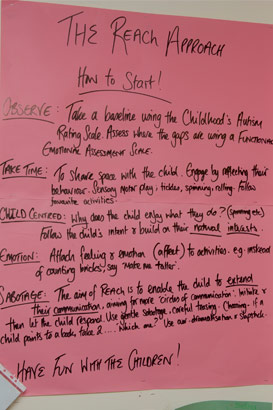 THE REACH APPROACH
HOW TO START!
OBSERVE: Take a baseline using the Childhood's Autism
Rating Scale. Assess where the gaps are using a FUNCTIONAL
EMOTIONAL ASSESSMENT SCALE.
TAKE TIME: To share space with the child. Engage by reflecting their
behaviour. Sensory motor play; tickles, spinning, rolling. Follow
favourite activities.
CHILD CENTRED: Why does the child enjoy what they do? (spinning etc)
Follow the child's intent & build on their natural interests.
EMOTION: Attach feeling & emotion (affect) to activities. e.g. instead
of counting bricks, say 'Make me taller'.
SABOTAGE: The aim of REACH is to enable the child to extend
their communication, aiming for more 'circles of communication'. Initiate &
then let the child respond. Use gentle sabotage, careful teasing. Choosing. If a
child points to a book, take 2.... 'Which one?' Use over-dramatisation & slapstick.
HAVE FUN WITH THE CHILDREN!